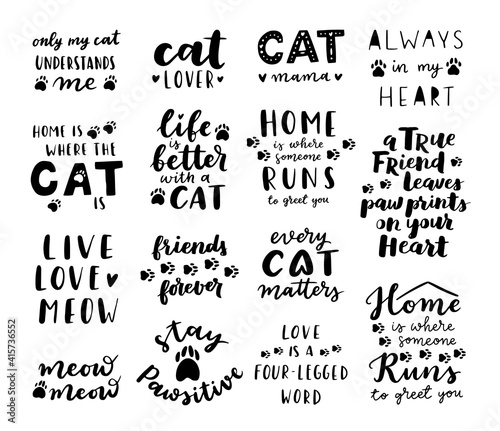 only my cat
UNDERSTANDS
me
cat
LOVER
CAT
mama
ALWAYS
in my
HEART
HOME IS
WHERE THE
CAT
IS
life
is
better
with a
CAT
HOME
is where
someone
RUNS
to greet you
a TRUE
FRiend
leaves
paw prints
on your
Heart
LIVE
LOVE
MEOW
friends
forever
every
CAT
matters
Home
is where
someone
Runs
to greet you
meow
meow
stay
Pawsitive
LOVE
IS A
FOUR-LEGGED
WORD
Adobe Stock | #415736552